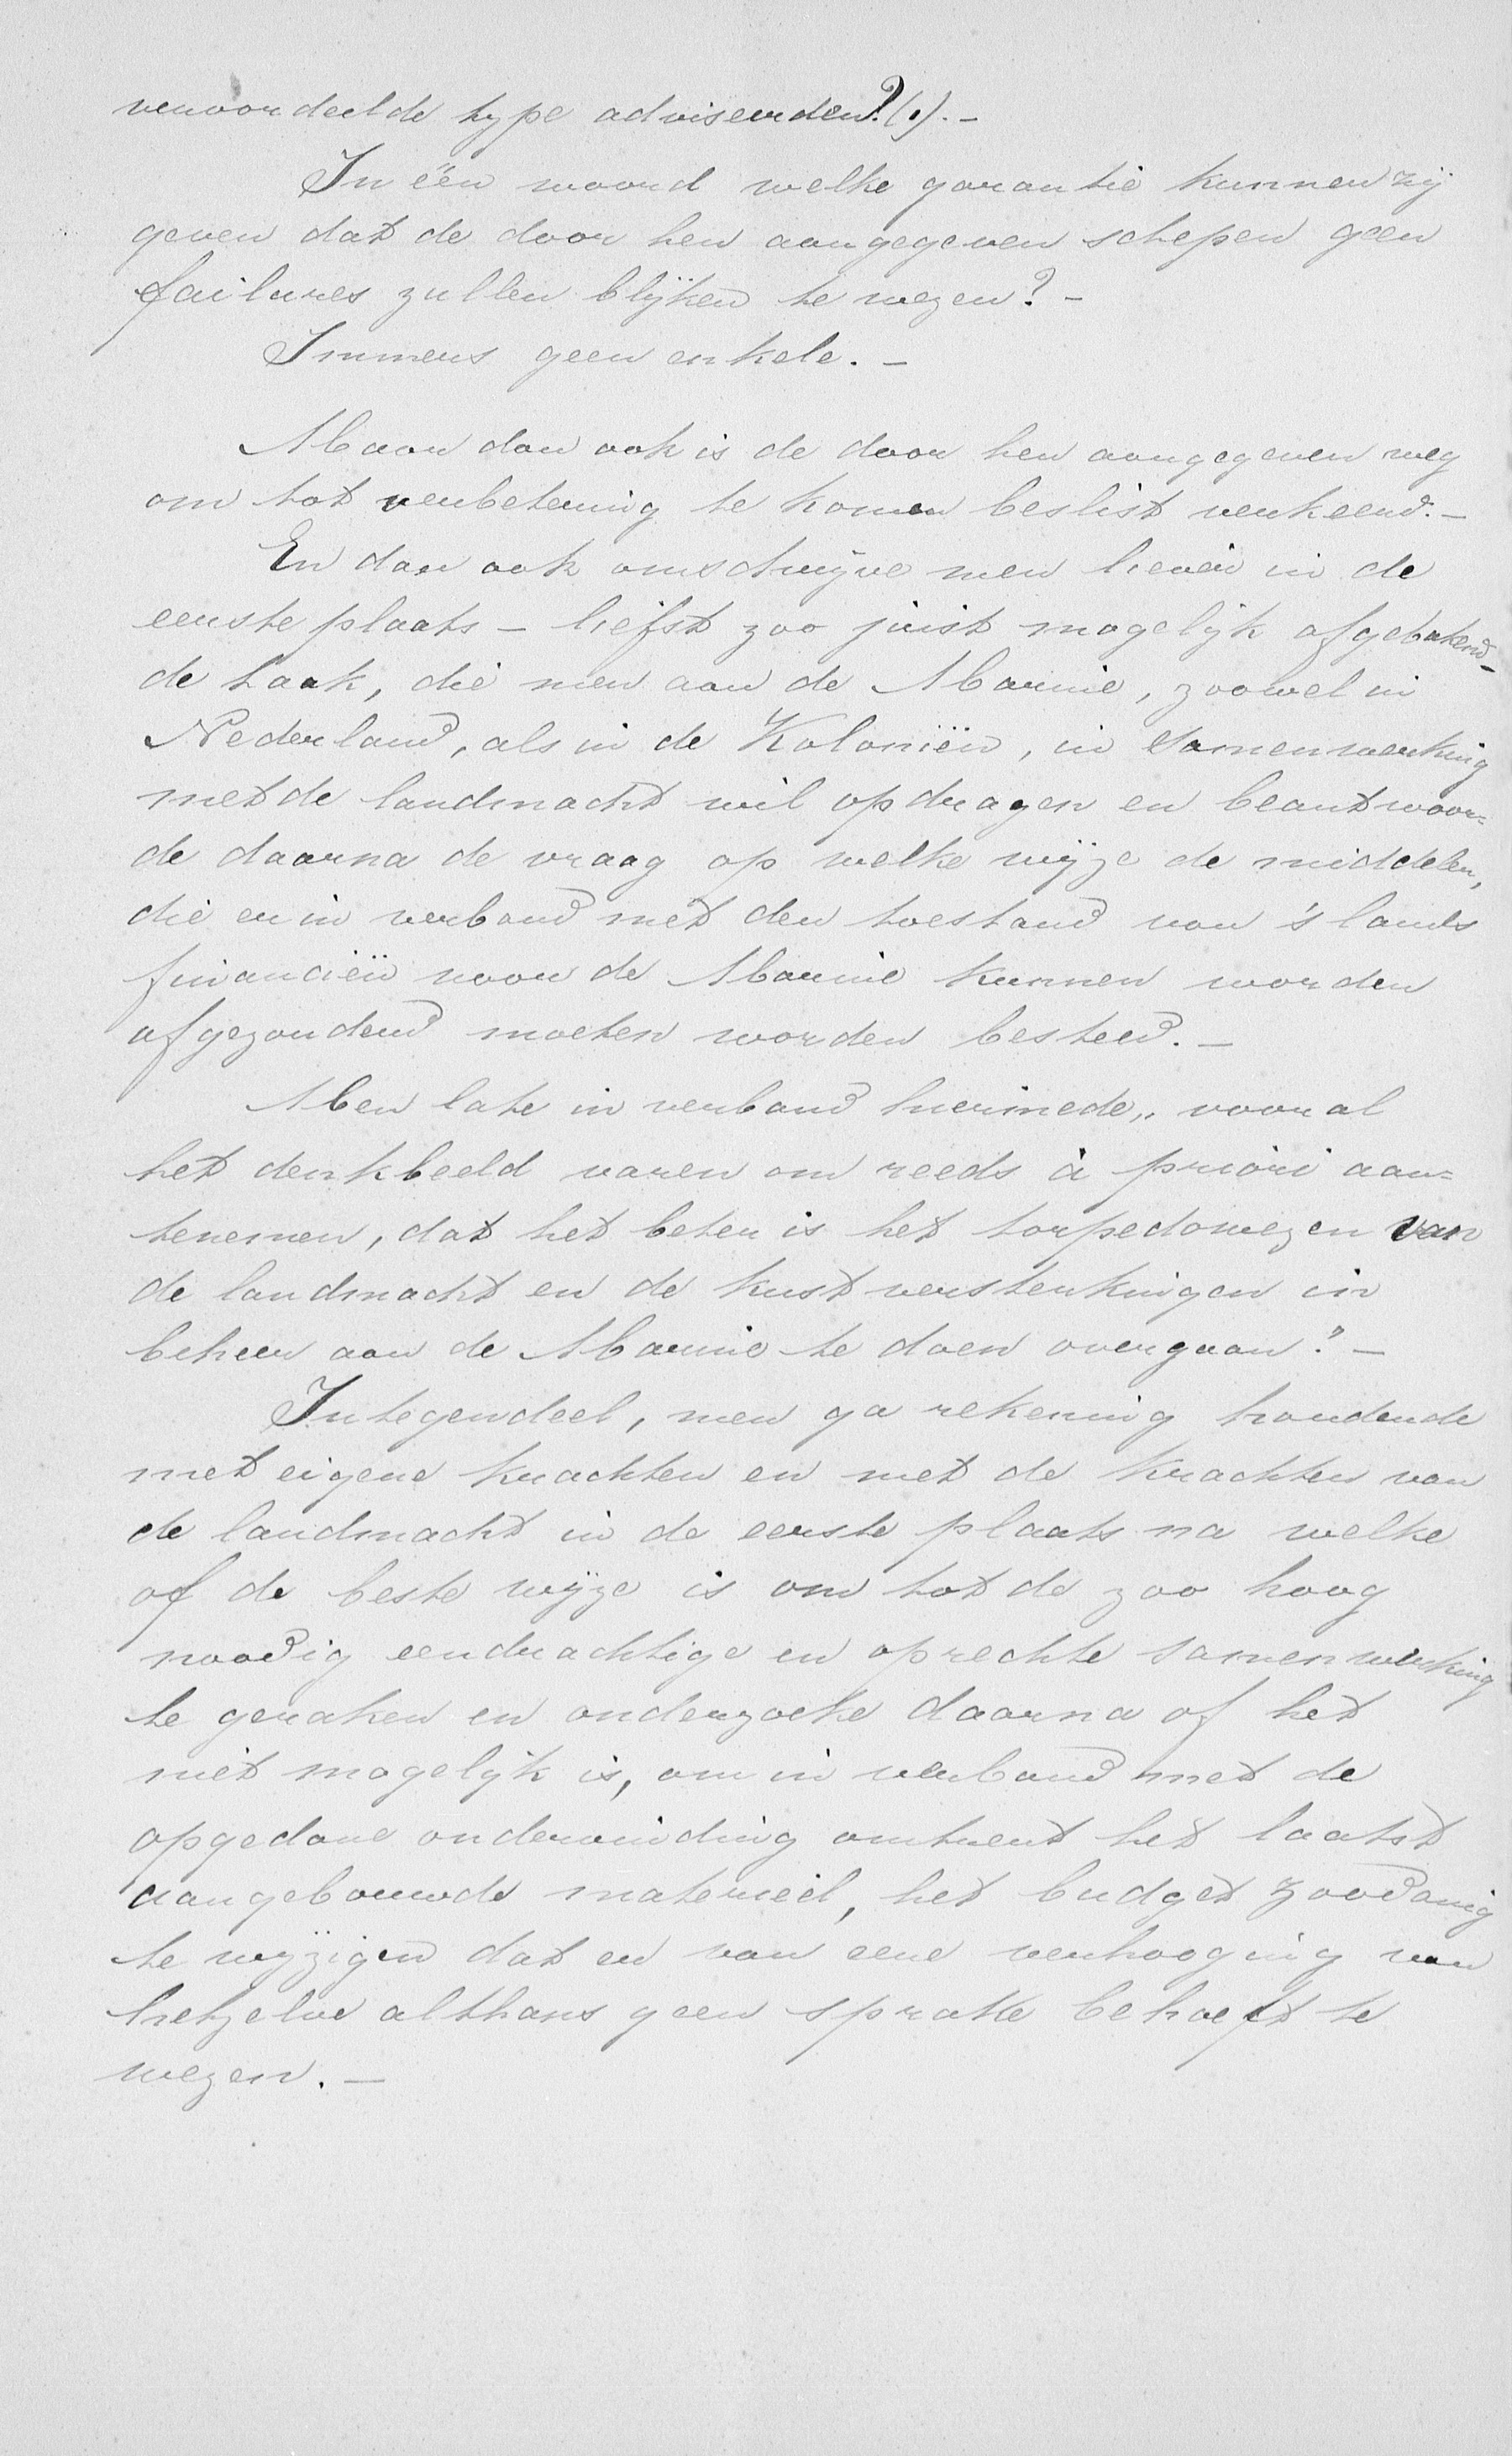 veroordeelde type adviseerden?(1).-
In één woord welke garantie kunnen zij
geven dat de door hen aangegeven schepen geen
failures zullen blijken te wezen?-
Immers geen enkele.-
Maar dan ook is de door hen aangegeven weg
om tot verbetering te komen beslist verkeerd.-
En dan ook omschrijve men liever in de
eerste plaats - liefst zoo juist mogelijk afgebakend-
de taak, die men aan de Marine, zoowel in
Nederland, als in de Koloniën, in samenwerking
met de landmacht wil opdragen en beantwoor=
de daarna de vraag op welke wijze de middelen,
die er in verband met den toestand van 's lands
financiën voor de Marine kunnen worden
afgezonderd moeten worden besteed.-
Men late in verband hiermede, vooral
het denkbeeld varen om reeds à priori aan=
tenemen, dat het beter is het torpedowezen van
de landmacht en de kustversterkingen in
beheer aan de Marine te doen overgaan?-
Integendeel, men ga rekening houdende
met eigene krachten en met de krachten van
de landmacht in de eerste plaats na welke
of de beste wijze is om tot de zoo hoog
noodig eendrachtige en oprechte samenwerking
te geraken en onderzoeke daarna of het
niet mogelijk is, om in verband met de
opgedane ondervinding omtrent het laatst
aangebouwde materieel, het budget zoodanig
te wijzigen dat er van eene verhooging van
hetzelve althans geen sprake behoeft te
wezen.-